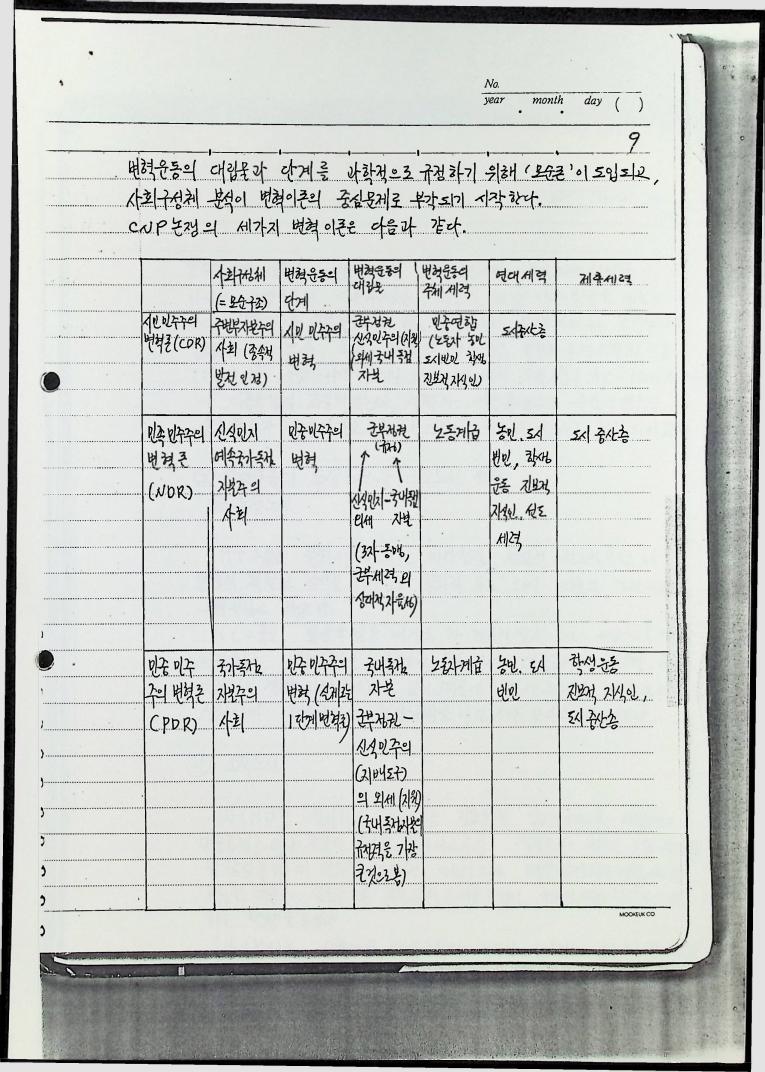 No.
year . month . day ( )
9
변혁운동의 대립물과 단계를 과학적으로 규정하기 위해 '모순론'이 도입되고,
사회구성체 분석이 변혁이론의 중심문제로 부각되기 시작한다.
CNP논쟁의 세가지 변혁이론은 다음과 같다.
사회구성체
(=모순구조)
변혁운동의
단계
변혁운동의
대립물
변혁운동의
주체세력
연대세력
제휴세력
시민민주주의
변혁론(CDR)
주변부자본주의
사회 (종속적
발전 인정)
시민 민주주의
변혁
군부정권
신식민주의(지원)
외세 국내독점
자본
민중연합
(노동자 농민
도시빈민 학생
진보적지식인)
도시중산층
민족민주주의
변혁론
(NDR)
신식민지
예속국가독점
자본주의
사회
민중민주주의
변혁
군부정권
신식민지-국내독점
외세 자본
(3자동맹,
군부세력의
상대적자율성)
노동계급
농민, 도시
빈민, 학생
운동 진보적
지식인, 선도
세력
도시 중산층
민중 민주
주의 변혁론
(PDR)
국가독점
자본주의
사회
민중민주주의
변혁 (실제로는
1단계변혁론)
국내독점
자본
군부정권-
신식민주의
(지배도구)
의 외세(지원)
(국내독점자본의
규정력을 가장
큰것으로봄)
노동자계급
농민, 도시
빈민
학생운동
진보적 지식인,
도시중산층
MOOKEUK CO